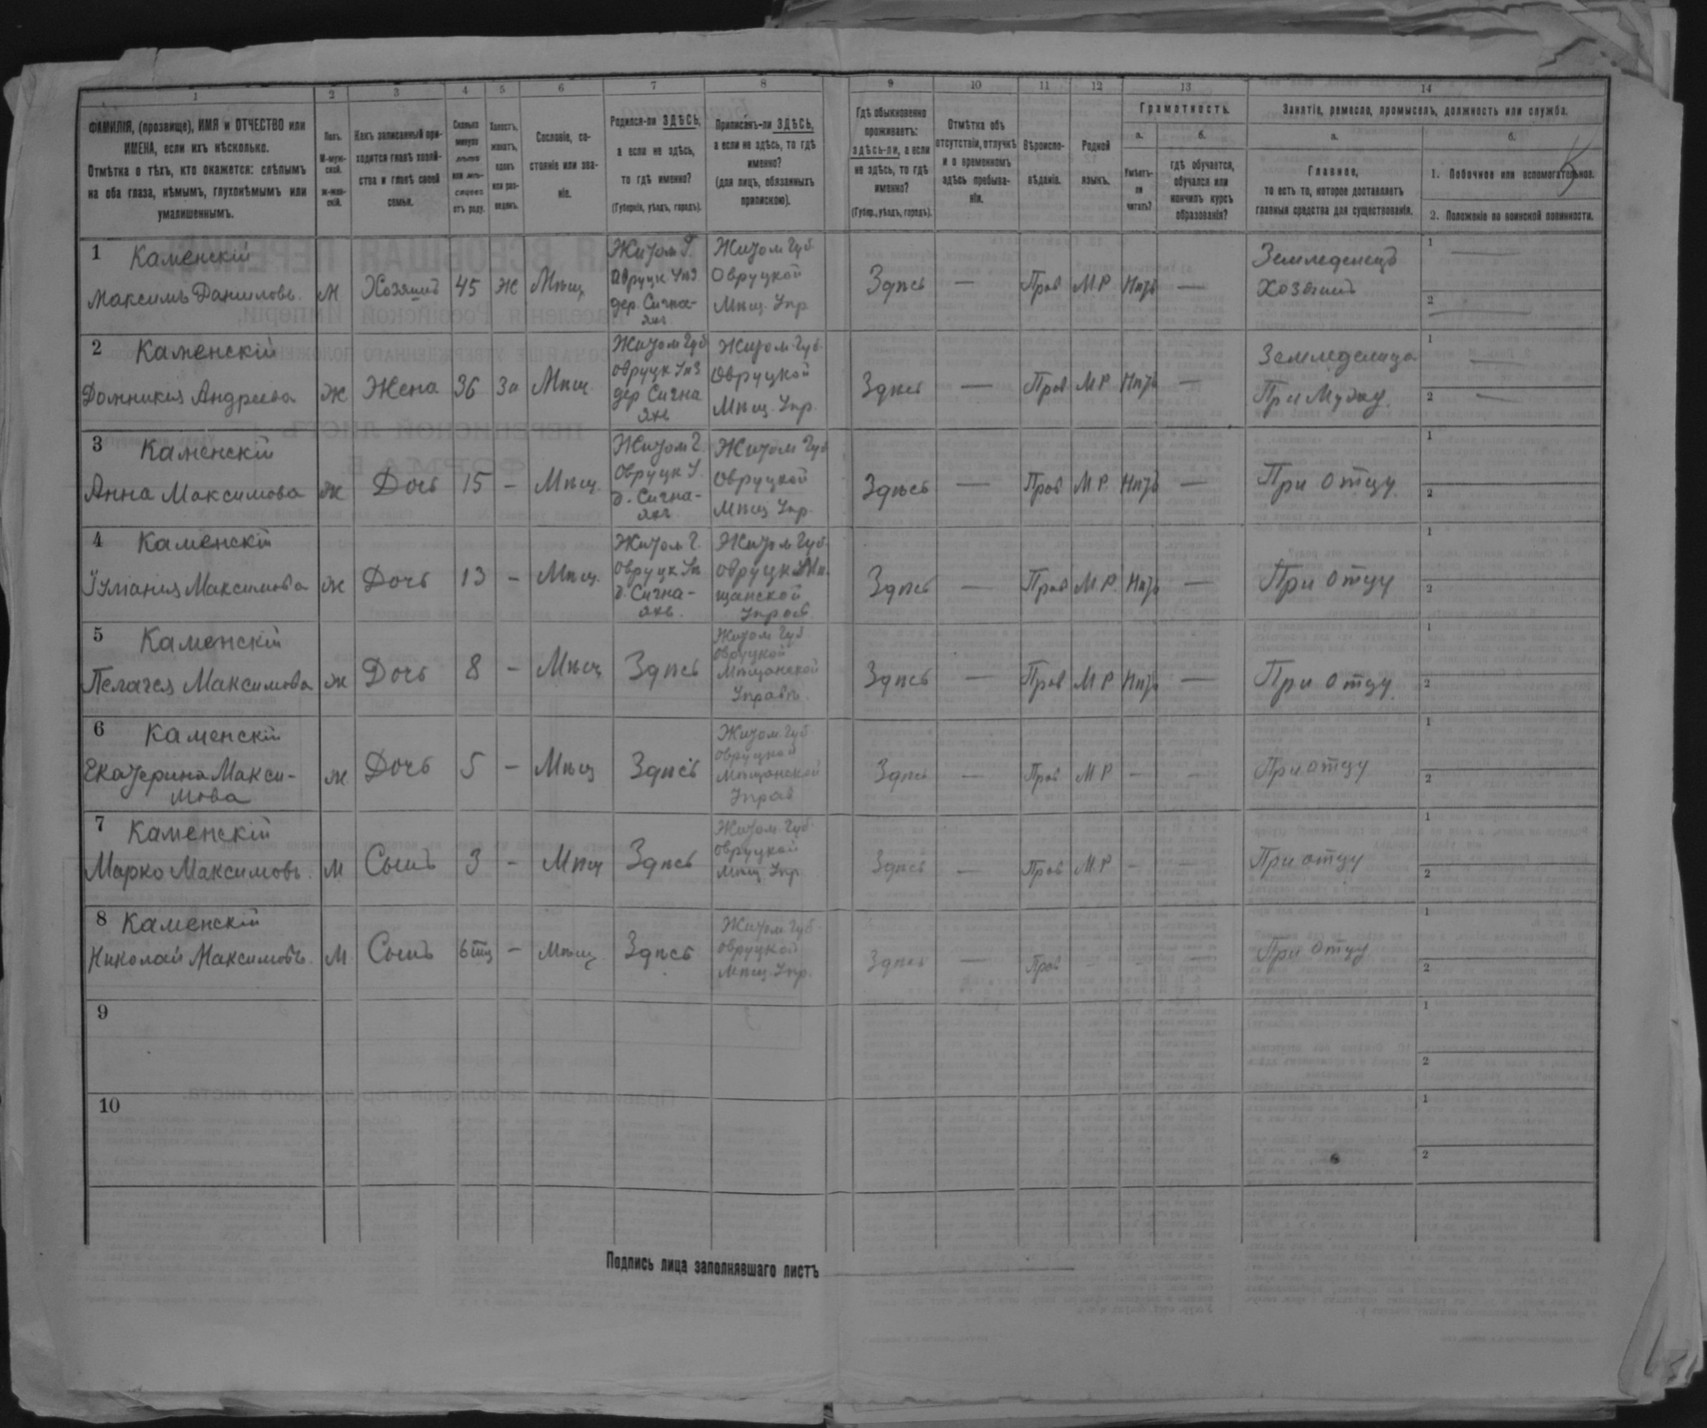 1 2 3 4 5 6 7 8 9 10 11 12 13 14
ФАМИЛІЯ, (прозвище), ИМЯ и ОТЧЕСТВО или
ИМЕНА, если ихъ нѣсколько.
Отмѣтка о тѣхъ, кто окажется: слѣпымъ
на оба глаза, нѣмымъ, глухонѣмымъ или
умалишеннымъ.
Полъ.
М-муж-
ской.
Ж-жен-
скій.
Какъ записанный при-
ходится главѣ хозяй-
ства и главѣ своей
семьи.
Сколько
минуло
лѣтъ
или мѣ-
сяцевъ
отъ роду.
Холостъ,
женатъ,
вдовъ
или раз-
веденъ.
Сословіе, со-
стояніе или зва-
ніе.
Родился-ли ЗДѢСЬ,
а если не здѣсь,
то гдѣ именно?
(Губернія, уѣздъ, городъ).
Приписанъ-ли ЗДѢСЬ,
а если не здѣсь, то гдѣ
именно?
(для лицъ, обязанныхъ
припискою).
Гдѣ обыкновенно
проживаетъ:
здѣсь-ли, а если
не здѣсь, то гдѣ
именно?
(Губер., уѣздъ, городъ).
Отмѣтка объ
отсутствіи, отлучкѣ
и о временномъ
здѣсь пребыва-
ніи.
Вѣроиспо-
вѣданіе.
Родной
языкъ.
Грамотность.
а.
Умѣетъ-
ли
читать?
б.
гдѣ обучается,
обучался или
кончилъ курсъ
образованія?
Занятіе, ремесло, промыселъ, должность или служба.
а.
Главное,
то есть то, которое доставляетъ
главныя средства для существованія.
б.
1. Побочное или вспомогательное.
2. Положеніе по воинской повинности.
1 Каменскій
Максимъ Даниловъ. М Хозяинъ 45 Ж Мѣщ
Житом Г.
Овруцк Уѣз
дер. Сигна-
Житом Губ
Овруцкой
Мѣщ. Упр
Здѣсь — Прав М Р Нѣтъ —
Земледелецъ
Хозяинъ
1 —
2 —
2 Каменскій
Домникия Андреева Ж Жена 36 За Мѣщ
Житом Губ
Овруцк Уѣз
дер Сигна
Житом Губ
Овруцкой
Мѣщ. Упр.
Здѣсь — Прав М Р. Нѣтъ —
Земледелица
При Мужу.
1 —
2 —
3 Каменскій
Анна Максимова Ж Дочь 15 - Мѣщ.
Житом Г.
Овруцк У.
д. Сигна-
Житом Губ
Овруцкой
Мѣщ Упр.
Здѣсь — Прав М Р. Нѣтъ —
При отцу.
1
2
4 Каменскій
Іулиания Максимова Ж Дочь 13 - Мѣщ.
Житом Г.
Овруцк Уѣ
д. Сигна-
Житом Губ.
Овруцк Мѣ
щанской
Управ
Здѣсь — Прав М Р. Нѣтъ —
При отцу
1
2
5 Каменскій
Пелагея Максимова Ж Дочь 8 - Мѣщ Здѣсь
Житом Губ
Овруцкой
Мѣщанской
Управъ.
Здѣсь — Прав М Р Нѣтъ —
При отцу.
1
2
6 Каменскій
Екатерина Макси-
мова
Ж Дочь 5 - Мѣщ Здѣсь
Житом Губ
Овруцкой
Мѣщанской
Управ
Здѣсь — Прав М Р - -
При отцу
1
2
7 Каменскій
Марко Максимовъ. М Сынъ 3 - Мѣщ Здѣсь
Житом Губ
Овруцкой
Мѣщ Упр
Здѣсь — Прав М.Р - -
При отцу
1
2
8 Каменскій
Николай Максимовъ. М Сынъ 6 мц - Мѣщ. Здѣсь
Житом Губ
Овруцкой
Мѣщ Упр.
Здѣсь — Прав - - -
При отцу
1
2
9
1
2
10
1
2
Подпись лица заполнявшаго листъ